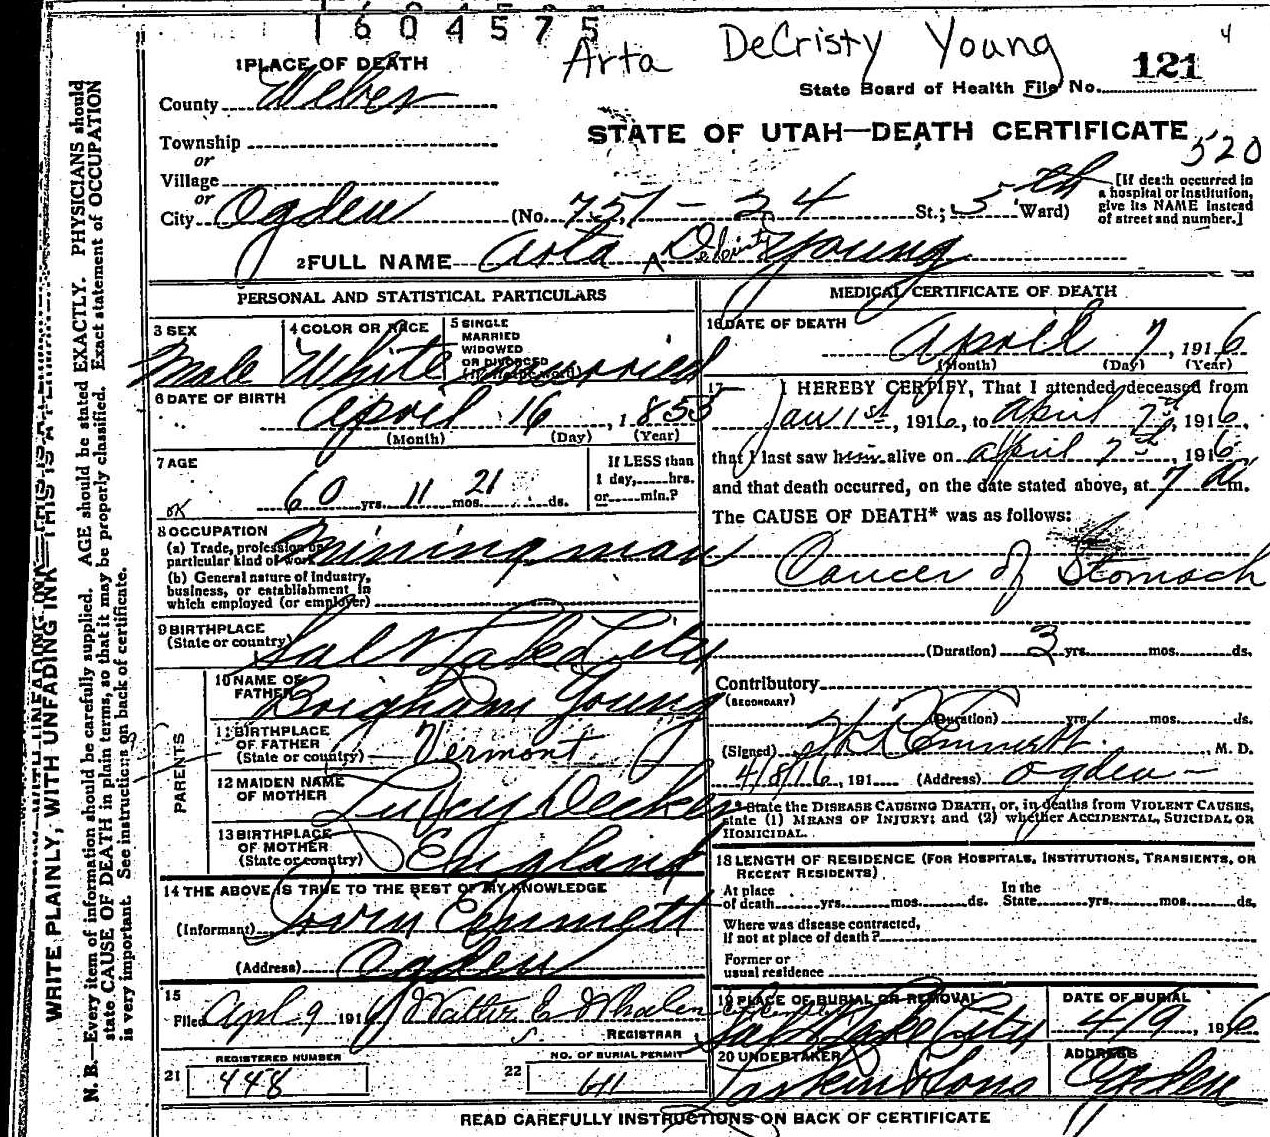 1604575
Arta DeCristy Young
4
121
1 PLACE OF DEATH
State Board of Health File No.
County Weber
STATE OF UTAH—DEATH CERTIFICATE
520
Township
or
Village
or
City Ogden (No. 757 - 24 St.; 5th Ward)
[If death occurred in a hospital or institution, give its NAME instead of street and number.]
2 FULL NAME Arta DeCristy Young
PERSONAL AND STATISTICAL PARTICULARS
3 SEX Male
4 COLOR OR RACE White
5 SINGLE MARRIED WIDOWED OR DIVORCED Married
6 DATE OF BIRTH April 16, 1855
(Month) (Day) (Year)
7 AGE
60 yrs. 11 mos. 21 ds.
If LESS than 1 day, hrs. or min.?
OK
8 OCCUPATION
(a) Trade, profession or particular kind of work Mining man
(b) General nature of Industry, business, or establishment in which employed (or employer)
9 BIRTHPLACE
(State or country) Salt Lake City
PARENTS
10 NAME OF FATHER Brigham Young
11 BIRTHPLACE OF FATHER
(State or country) Vermont
12 MAIDEN NAME OF MOTHER Lucy Decker
13 BIRTHPLACE OF MOTHER
(State or country) England
14 THE ABOVE IS TRUE TO THE BEST OF MY KNOWLEDGE
(Informant) Emmett
(Address) Ogden
15
Filed Apl. 9 1916 Walter E Whalen
REGISTRAR
REGISTERED NUMBER
21 448
NO. OF BURIAL PERMIT
22 611
MEDICAL CERTIFICATE OF DEATH
16 DATE OF DEATH
April 7, 1916
(Month) (Day) (Year)
17 I HEREBY CERTIFY, That I attended deceased from
Jan 1st, 1916, to April 7th, 1916,
that I last saw him alive on April 7th, 1916
and that death occurred, on the date stated above, at 7 a m.
The CAUSE OF DEATH* was as follows:
Cancer of Stomach
(Duration) 3 yrs. mos. ds.
Contributory
(SECONDARY)
(Duration) yrs. mos. ds.
(Signed) Emmett, M. D.
4/8/16, 191 (Address) Ogden
* State the DISEASE CAUSING DEATH, or, in deaths from VIOLENT CAUSES, state (1) MEANS OF INJURY; and (2) whether ACCIDENTAL, SUICIDAL OR HOMICIDAL.
18 LENGTH OF RESIDENCE (FOR HOSPITALS, INSTITUTIONS, TRANSIENTS, OR RECENT RESIDENTS)
At place of death yrs. mos. ds. In the State yrs. mos. ds.
Where was disease contracted, If not at place of death?
Former or usual residence
19 PLACE OF BURIAL OR REMOVAL Salt Lake City
DATE OF BURIAL 4/9, 1916
20 UNDERTAKER Larkin & Sons
ADDRESS Ogden
READ CAREFULLY INSTRUCTIONS ON BACK OF CERTIFICATE
WRITE PLAINLY, WITH UNFADING INK—THIS IS A PERMANENT
N. B.—Every item of information should be carefully supplied. AGE should be stated EXACTLY. PHYSICIANS should
state CAUSE OF DEATH in plain terms, so that it may be properly classified. Exact statement of OCCUPATION
is very important. See instructions on back of certificate.